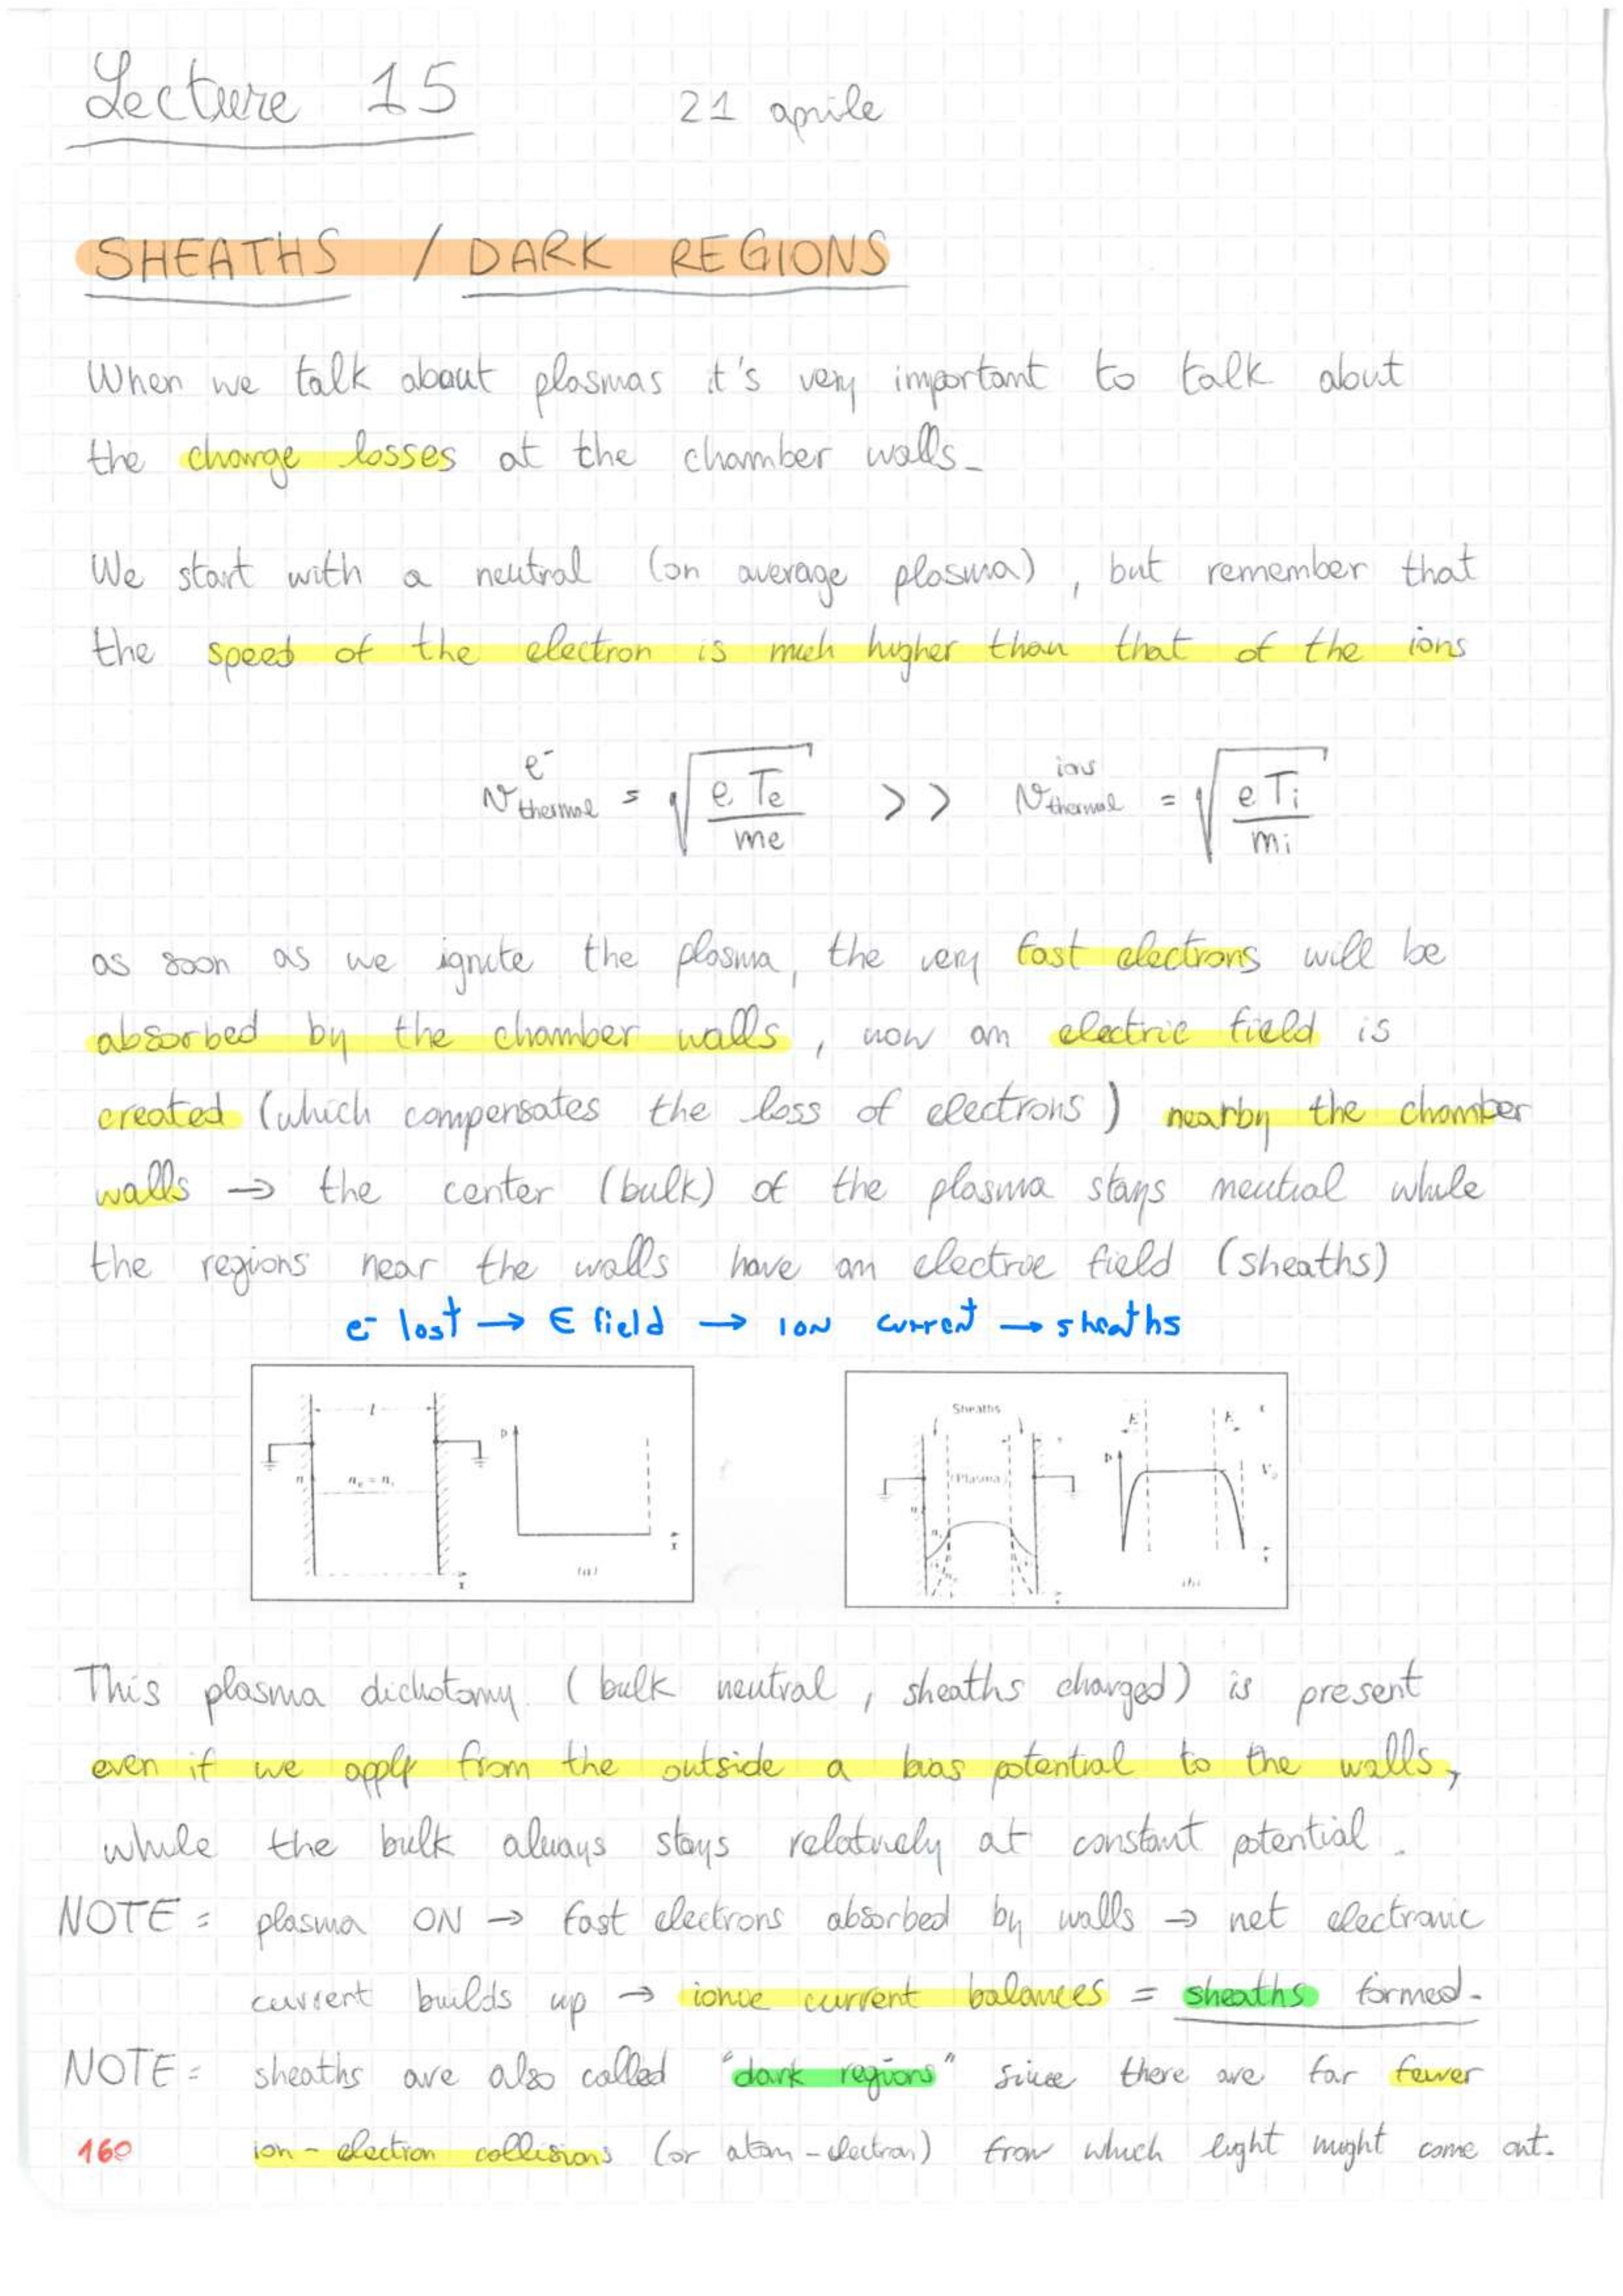 Lecture 15 21 aprile
SHEATHS / DARK REGIONS
When we talk about plasmas it's very important to talk about
the charge losses at the chamber walls.
We start with a neutral (on average plasma), but remember that
the speed of the electron is much higher than that of the ions
v e⁻ thermal = √(e Te / me) >> v ions thermal = √(e Ti / mi)
as soon as we ignite the plasma, the very fast electrons will be
absorbed by the chamber walls, now an electric field is
created (which compensates the loss of electrons) nearby the chamber
walls → the center (bulk) of the plasma stays neutral while
the regions near the walls have an electric field (sheaths)
e⁻ lost → E field → ION current → sheaths
l
n
nₑ = nᵢ
x
(a)
Sheaths
(Plasma)
E
E
x
This plasma dichotomy. (bulk neutral, sheaths charged) is present
even if we apply from the outside a bias potential to the walls,
while the bulk always stays relatively at constant potential.
NOTE: plasma ON → fast electrons absorbed by walls → net electronic
current builds up → ionic current balances = sheaths formed.
NOTE: sheaths are also called "dark regions" since there are far fewer
160 ion-electron collisions (or atom-electron) from which light might come out.